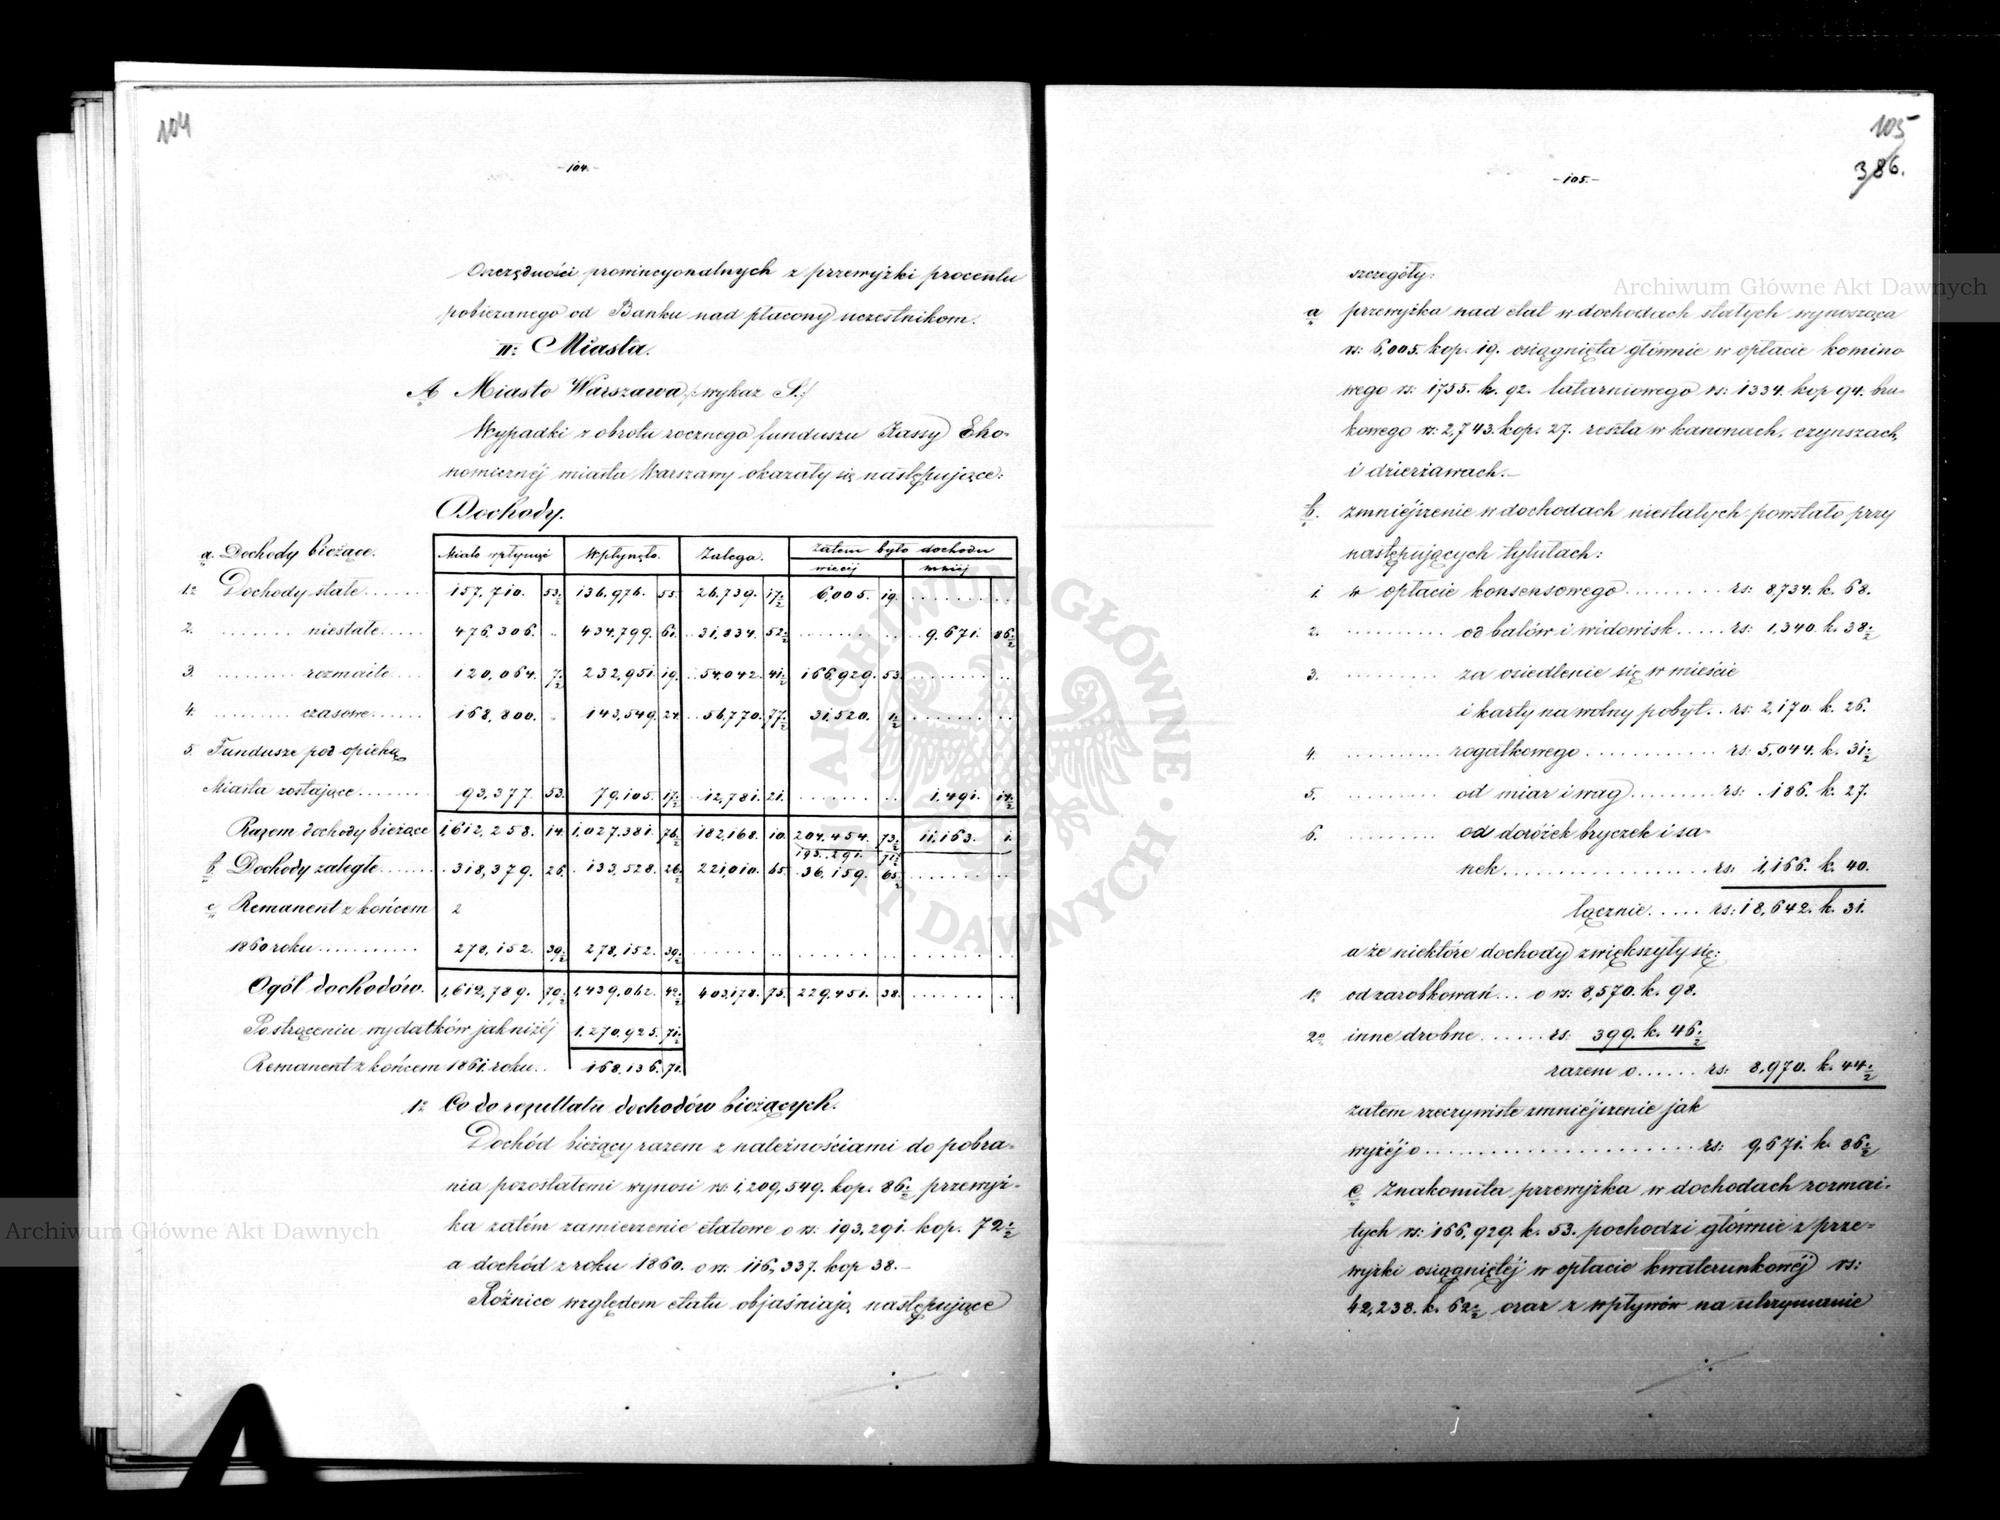 104
-104.-
Oszczędności prowincyonalnych z przewyżki procentu
pobieranego od Banku nad płacony uczestnikom.
II: Miasta.
A Miasto Warszawa /:wykaz S:/
Wypadki z obrotu rocznego funduszu Kassy Eko-
nomicznéj miasta Warszawy okazały się następujące:
Dochody.
a. Dochody bieżące. Miało wpłynąć Wpłynęło. Zalega. Zatem było dochodu
więcéj mniéj
1o Dochody stałe...... 157,710. 53½ 136,976. 55. 26,739. 17½ 6,005. 19.
2. ........ niestałe..... 476,306. 434,799. 61. 31,834. 52½ 9,671. 86½
3. ........ rozmaite.... 120,064. 7½ 232,951. 19. 54,042. 41½ 166,929. 53.
4. ........ czasowe...... 168,800. 143,549. 24. 56,770. 77½ 31,520. 1½
5. Fundusze pod opieką
Miasta zostające........ 93,377. 53. 79,105. 17½ 12,781. 21. 1,491. 14½
Razem dochody bieżące 1,612,258. 14. 1,027,381. 76½ 182,168. 10. 204,454. 73½ 11,163. 1.
193,291. 71½
b Dochody zaległe....... 318,379. 26. 133,528. 26½ 221,010. 65. 36,159. 65½
c Remanent z końcem 2
1860 roku........... 278,152. 39½ 278,152. 39½
Ogół dochodów. 1,612,789. 79½ 1,439,062. 42½ 403,178. 75. 229,451. 38.
Po strąceniu wydatków jak niżéj 1,270,925. 71½
Remanent z końcem 1861. roku.. 168,136. 71.
1o Co do rezultatu dochodów bieżących.
Dochód bieżący razem z należnościami do pobra-
nia pozostałemi wynosi rs: 1,209,549. kop. 86½ przewyż-
ka zatém zamierzenie etatowe o rs: 193,291. kop. 72½
a dochód z roku 1860. o rs: 116,337. kop 38.-
Różnice względem etatu objaśniają następujące
105
386.
-105.-
szczegóły:
a przewyżka nad etat w dochodach stałych wynosząca
rs: 6,005. kop. 19. osiągnięta głównie w opłacie komino
wego rs: 1755. k. 92. latarniowego rs: 1334. kop 94. bru-
kowego rs: 2,743. kop. 27. reszta w kanonach, czynszach,
i dzierżawach.-
b. zmniéjszenie w dochodach niestałych powstało przy
następujących tytułach:
1. w opłacie konsensowego......... rs: 8,734. k. 68.
2. .......... od balów i widowisk..... rs: 1,340. k. 38½
3. .......... za osiedlenie się w mieście
i karty na wolny pobyt.. rs: 2,170. k. 26.
4. .......... rogatkowego............ rs: 5,044. k. 31½
5. .......... od miar i wag......... rs: 186. k. 27.
6. .......... od dorożek bryczek i sa-
nek..................... rs: 1,166. k. 40.
łącznie..... rs: 18,642. k. 31.
a że niektóre dochody zwiększyły się:
1o od zarobkowań... o rs: 8,570. k. 98.
2o inne drobne....... rs: 399. k. 46½
razem o...... rs: 8,970. k. 44½
zatem rzeczywiste zmniéjszenie jak
wyżéj o........................ rs: 9,671. k. 86½
c Znakomita przewyżka w dochodach rozmai-
tych rs: 166,929. k. 53. pochodzi głównie z prze-
wyżki osiągniętéj w opłacie kwaterunkowéj rs:
42,238. k. 62½ oraz z wpływów na utrzymanie
Archiwum Główne Akt Dawnych
Archiwum Główne Akt Dawnych
ARCHIWUM GŁÓWNE AKT DAWNYCH